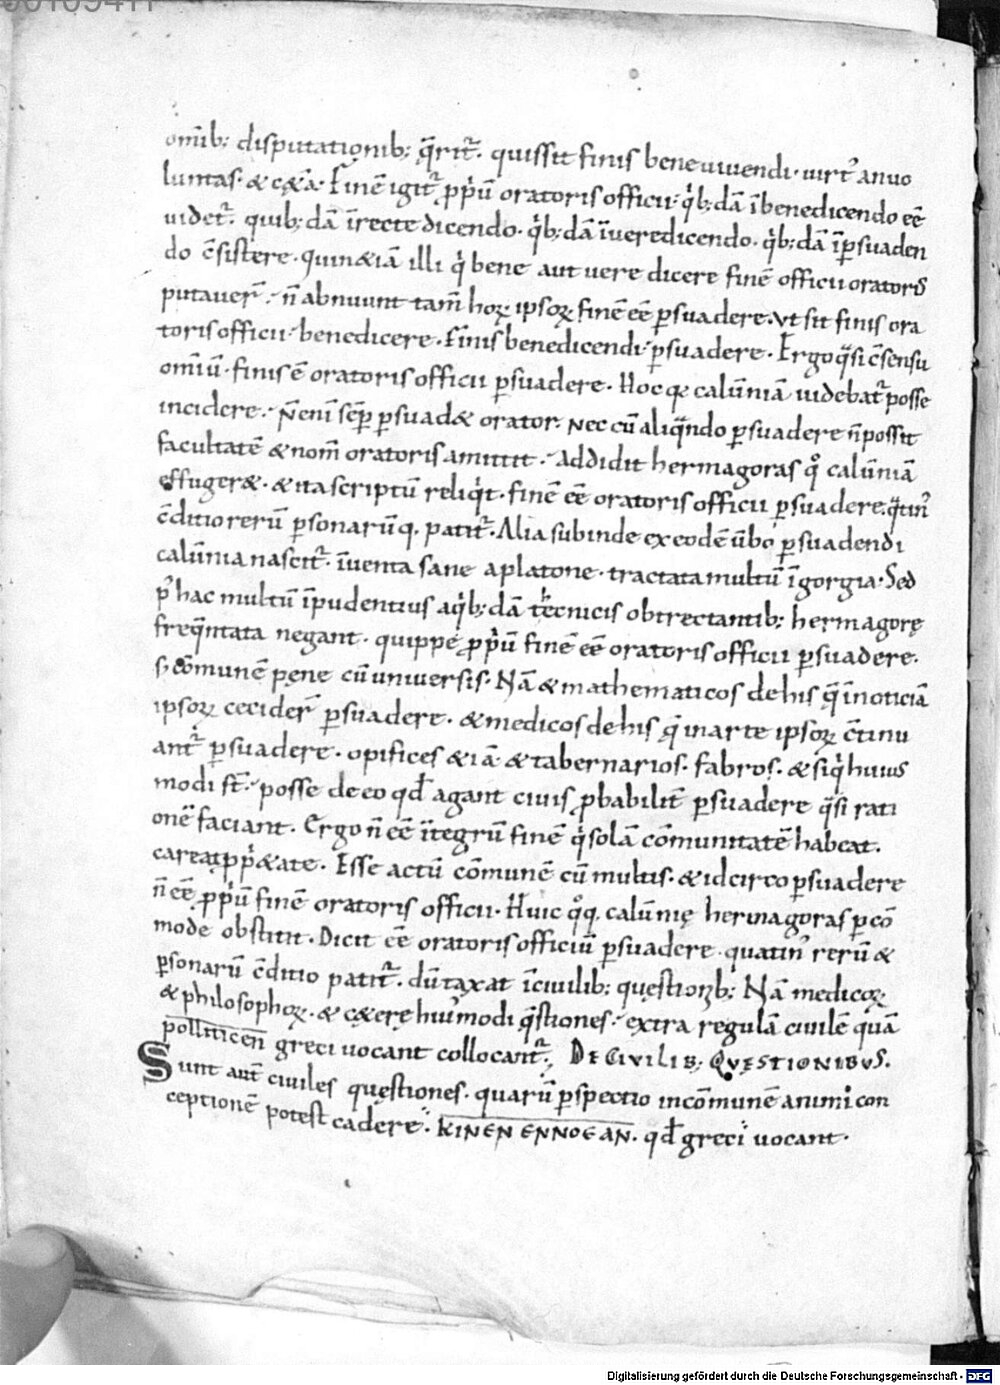 00109411
om̅ib; disputationib; q̅rit᷒. quis sit finis bene uiuendi. uirt᷒ an uo
luntas. & c&̅a. Fine̅ igit᷒ p̅p̍iu̅ oratoris officii. q̍b;da̅ i̅ benedicendo ee̅
uidet᷒. quib;da̅ i̅ recte dicendo. q̍b;da̅ i̅ uere dicendo. q̍b;da̅ i̅ p̱suaden
do c̅sistere. quin &ia̅ illi q̍ bene aut uere dicere fine̅ officii oratoris
putauer̅. n̅ abnuunt tam̅ hoꝝ ipsoꝝ fine̅ ee̅ p̱suadere. Vt sit finis ora
toris officii. benedicere. Finis benedicendi. p̱suadere. Ergo q̅si c̅sensu
omiu̅. finis e̅ oratoris officii p̱suadere. Hoc qq calu̅nia̅ uidebat᷒ posse
incidere. N̅ eni̅ semp̱ p̱suad& orator. Nec cu̅ aliq̅ndo p̱suadere n̅ possit
facultate̅ & nom̅ oratoris amittit. Addidit hermagoras q° calu̅nia̅
effuger&. & ita scriptu̅ reliq̍t. fine̅ ee̅ oratoris officii p̱suadere. q̅tin᷒
c̅ditio reru̅ p̱sonaru̅q. patit᷒. Alia subinde ex eode̅ u̅bo p̱suadendi
calu̅nia nascit᷒. i̅uenta sane a platone. tractata multu̅ i̅ gorgia. Sed
p᷒ hac multu̅ i̅pudentius a q̍b;da̅ tecnicis obtrectantib; hermagorę
freq̅ntata negant. quippe p̅p̍iu̅ fine̅ ee̅ oratoris officii p̱suadere.
s; co̅mune̅ pene cu̅ uniuersis. Na̅ & mathematicos de his q̅ i̅ noticia̅
ipsoꝝ cecider̅ p̱suadere. & medicos de his q̅ in arte ipsoꝝ c̅tinu
ant᷒ p̱suadere. opifices &ia̅ & tabernarios. fabros. & siq̍ huius
modi st̅. posse de eo qd̅ agant ciuis p̅babilit̅ p̱suadere q̅si rati
one̅ faciant. Ergo n̅ ee̅ i̅tegru̅ fine̅ q̍ sola̅ co̅munitate̅ habeat.
careat p̅p̍&ate. Esse actu̅ co̅mune̅ cu̅ multis. & idcirco p̱suadere
n̅ ee̅ p̅p̍iu̅ fine̅ oratoris officii. Huic q°q. calu̅nię hermagoras p̱ co̅
mode obstitit. Dicit ee̅ oratoris officiu̅ p̱suadere. quatin᷒ reru̅ &
p̱sonaru̅ c̅ditio patit᷒. du̅taxat i̅ ciuilib; questionib; Na̅ medicoꝝ
& philosophoꝝ. & c&erę hui᷒modi q̅stiones. extra regula̅ ciuile̅ qua̅
polliticen̅ greci uocant collocant᷒. DE CIVILIB; QVĘSTIONIBVS.
Sunt aut̅ ciuiles quęstiones. quaru̅ p̱spectio in co̅mune̅ animi con
ceptione̅ potest cadere. KINEN ENNOEAN. qd̅ greci uocant.
Digitalisierung gefördert durch die Deutsche Forschungsgemeinschaft - DFG